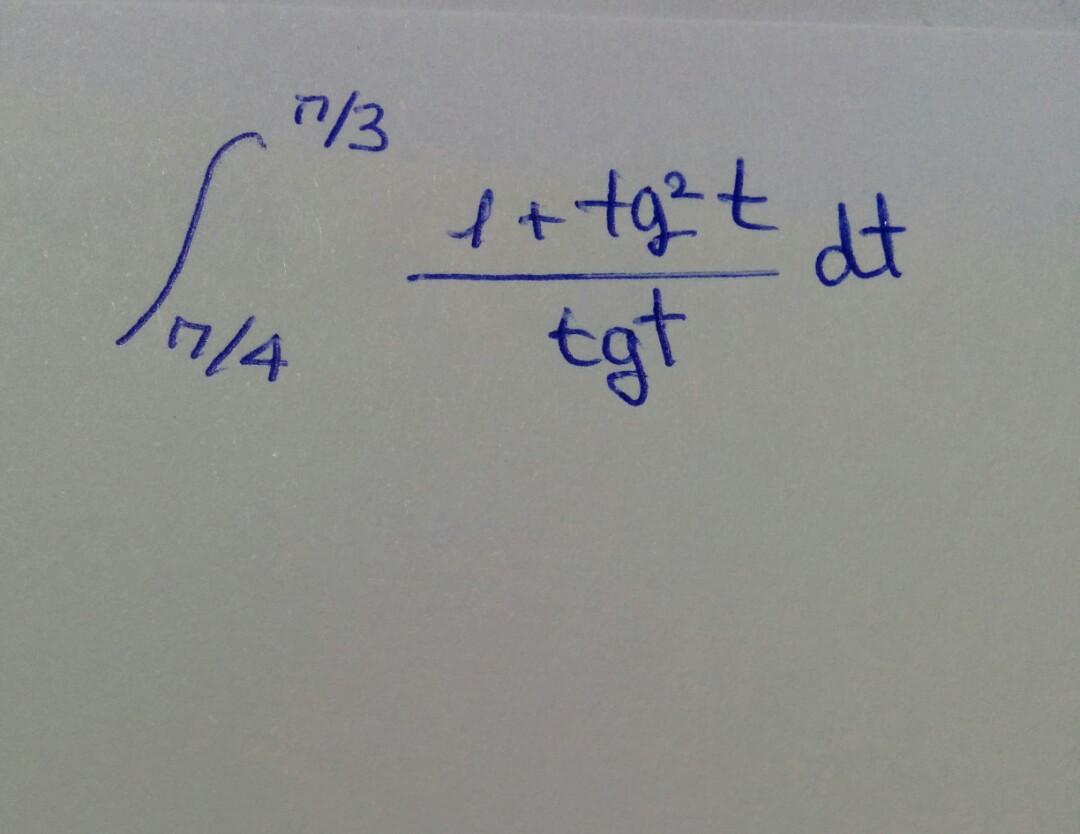 ∫_{π/4}^{π/3} \frac{1 + tg² t}{tg t} dt